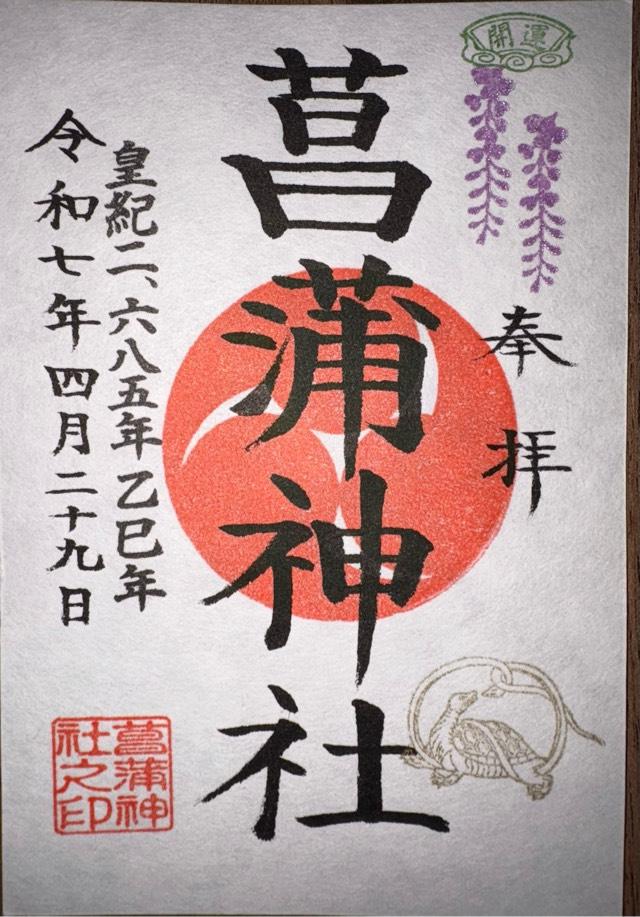 開運
奉拝
菖蒲神社
皇紀二、六八五年乙巳年
令和七年四月二十九日
菖蒲神
社之印